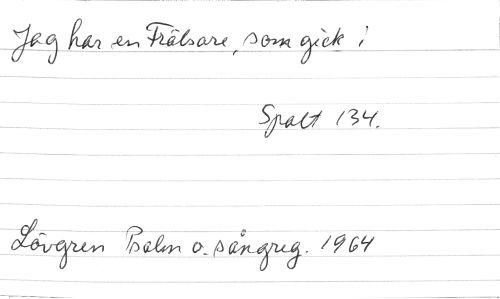 Jag har en Frälsare, som gick i
Spalt 134.
Lövgren Psalm o. sångreg. 1964